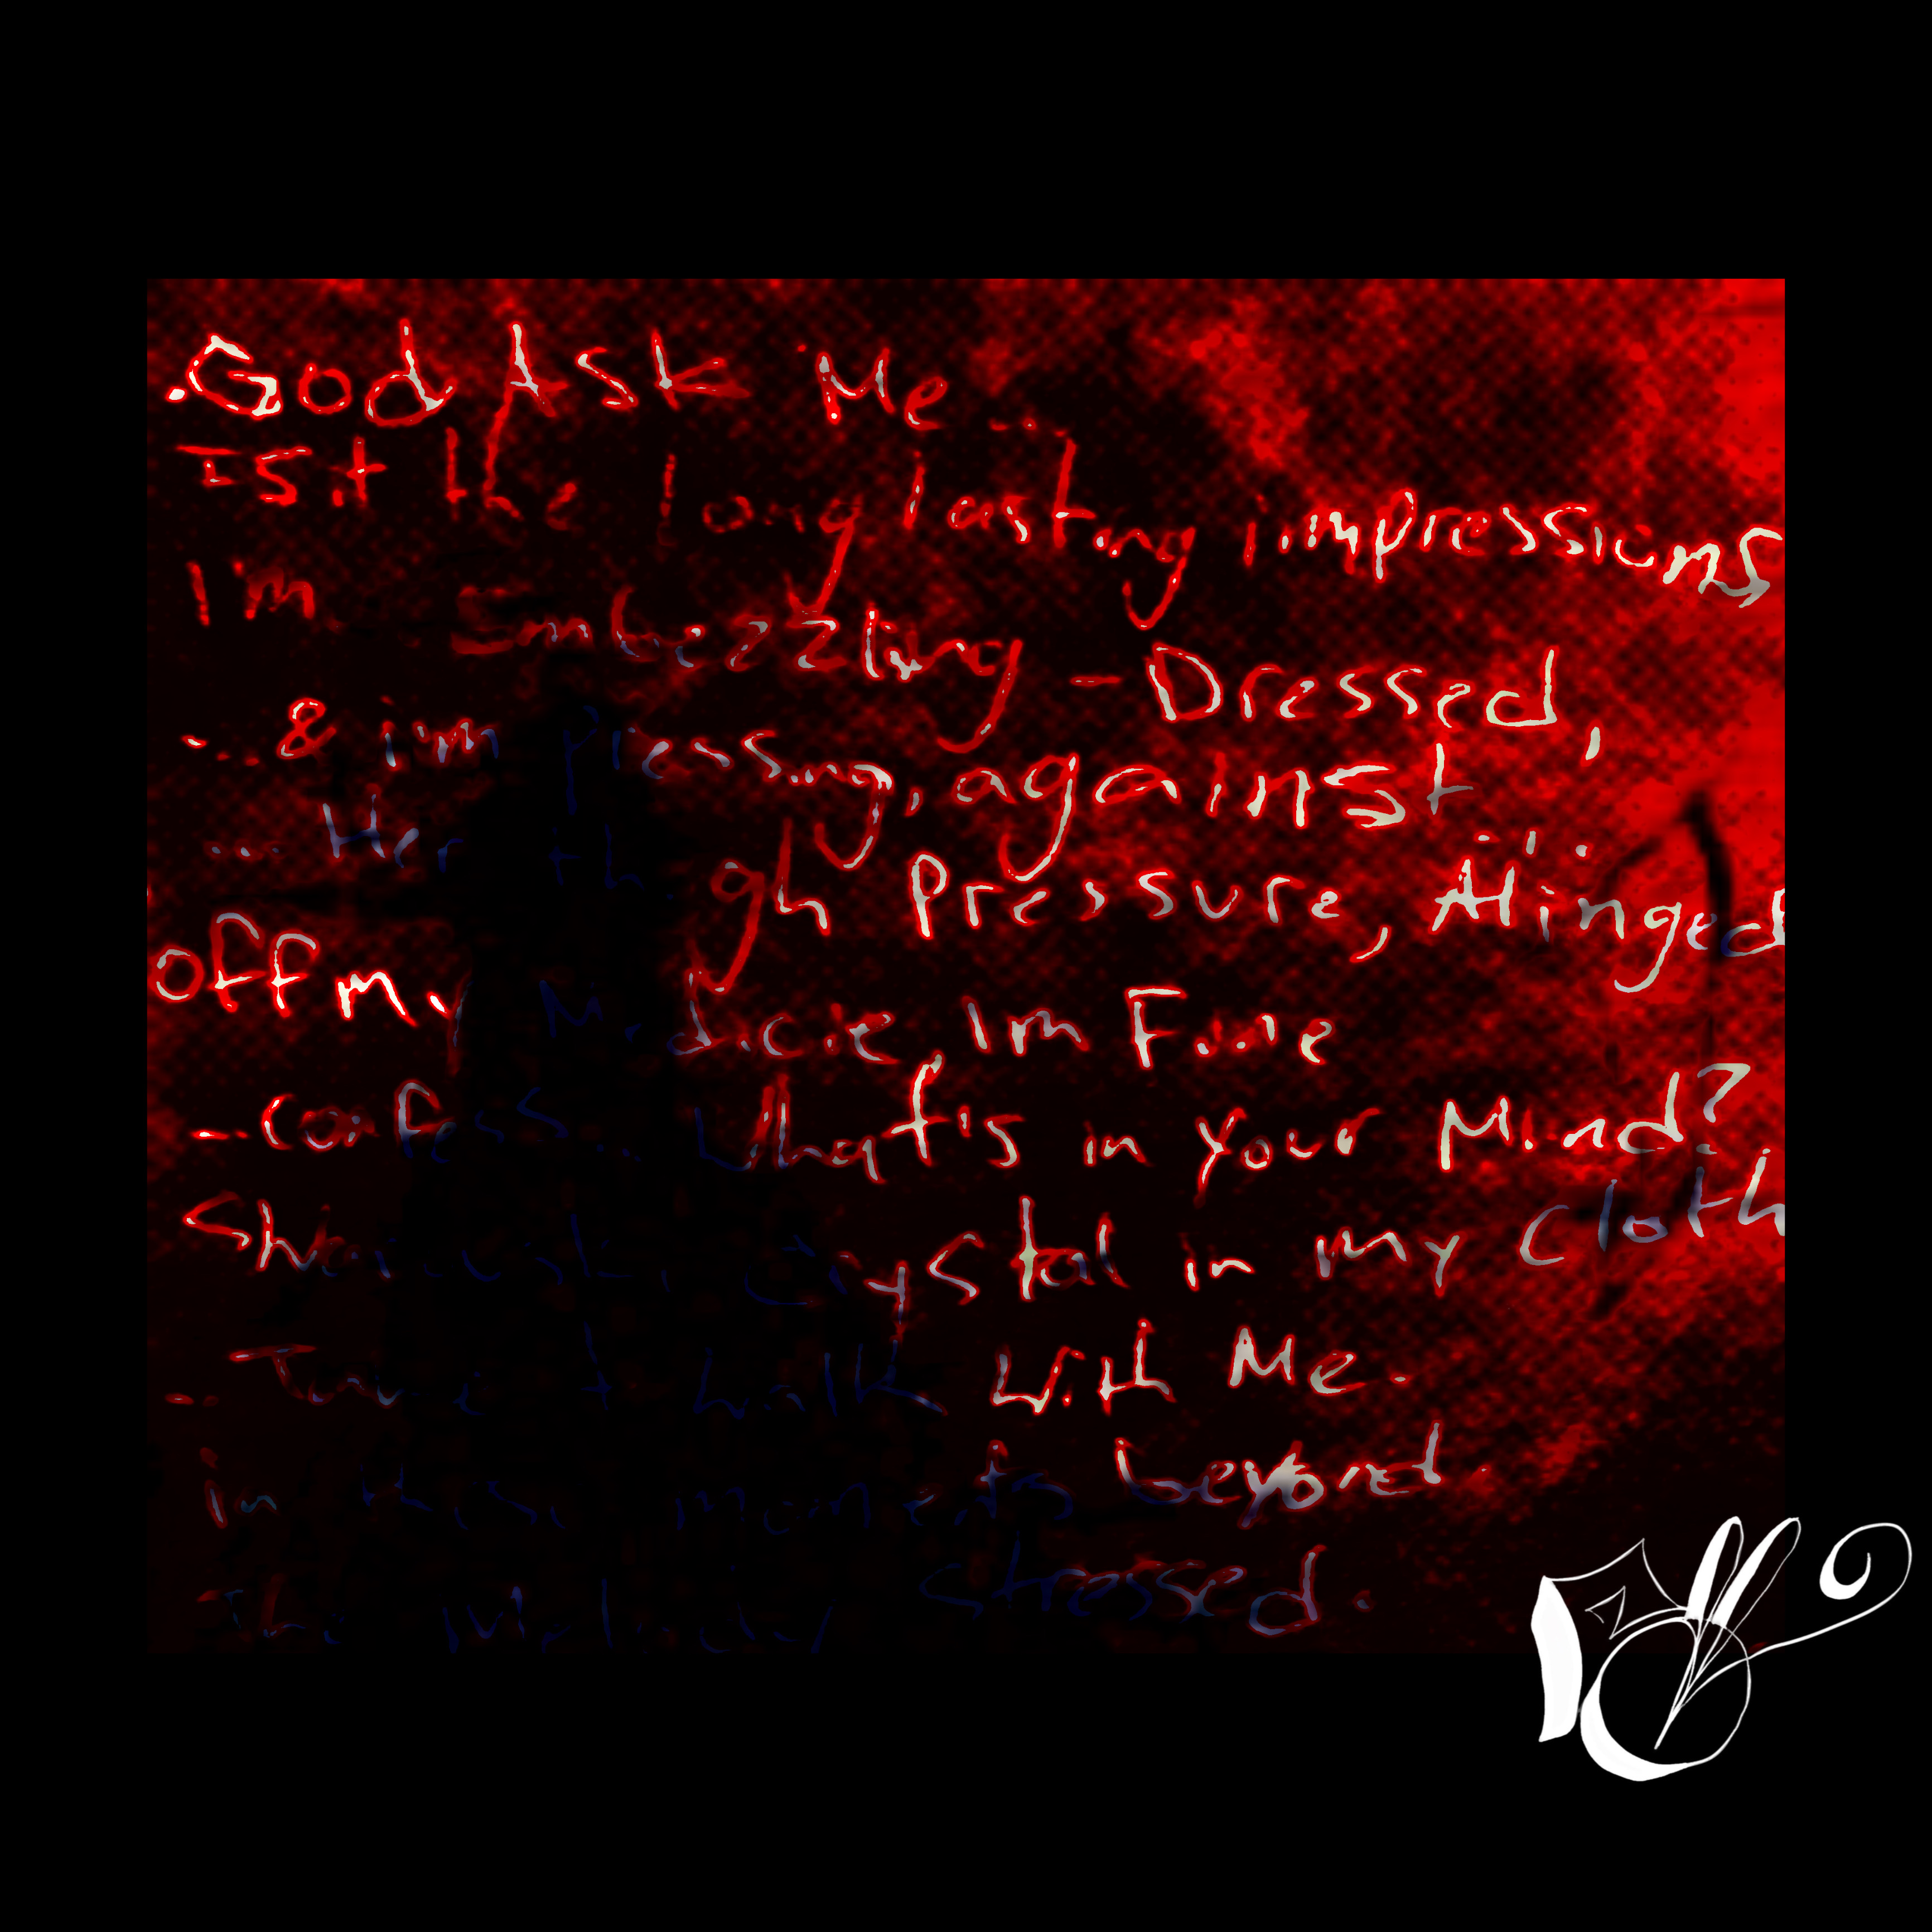 .God Ask Me ...
Is it the long lasting impressions
I'm Embezzling - Dressed,
...& i'm pressing, against
... Her thigh Pressure, Hinged
off my Medicine, I'm Fine
-- confess... What's in your Mind?
Crystal in my cloth
walk with Me.
in these moments beyond.
The stressed.